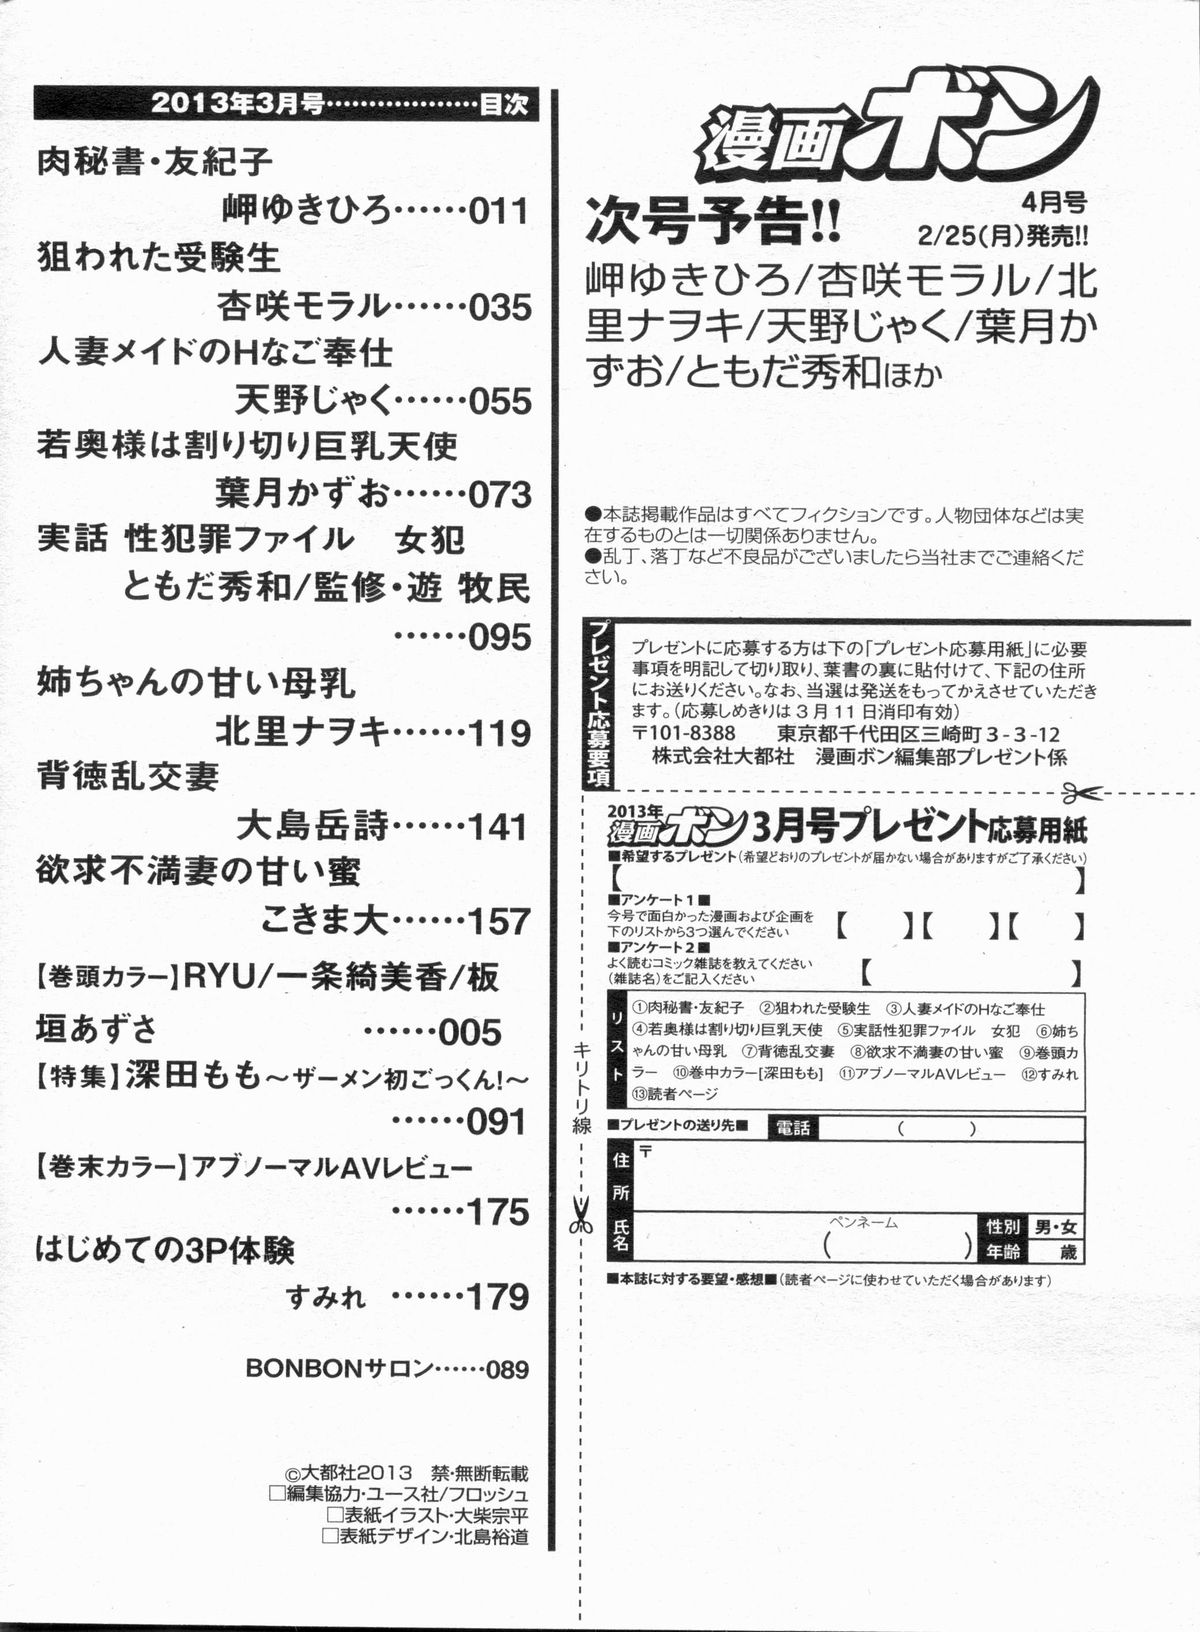 2013年3月号………………目次
肉秘書・友紀子
岬ゆきひろ……011
狙われた受験生
杏咲モラル……035
人妻メイドのHなご奉仕
天野じゃく……055
若奥様は割り切り巨乳天使
葉月かずお……073
実話 性犯罪ファイル　女犯
ともだ秀和/監修・遊 牧民
……095
姉ちゃんの甘い母乳
北里ナヲキ……119
背徳乱交妻
大島岳詩……141
欲求不満妻の甘い蜜
こきま大……157
【巻頭カラー】RYU/一条綺美香/板
垣あずさ　……005
【特集】深田もも～ザーメン初ごっくん!～
……091
【巻末カラー】アブノーマルAVレビュー
……175
はじめての3P体験
すみれ　……179
BONBONサロン……089
©大都社2013　禁・無断転載
□編集協力・ユース社/フロッシュ
□表紙イラスト・大柴宗平
□表紙デザイン・北島裕道
漫画ボン
次号予告!!
4月号
2/25(月)発売!!
岬ゆきひろ/杏咲モラル/北
里ナヲキ/天野じゃく/葉月か
ずお/ともだ秀和ほか
●本誌掲載作品はすべてフィクションです。人物団体などは実
在するものとは一切関係ありません。
●乱丁、落丁など不良品がございましたら当社までご連絡くだ
さい。
プレゼント応募要項
プレゼントに応募する方は下の「プレゼント応募用紙」に必要
事項を明記して切り取り、葉書の裏に貼付けて、下記の住所
にお送りください。なお、当選は発送をもってかえさせていただき
ます。(応募しめきりは3月11日消印有効)
〒101-8388　東京都千代田区三崎町3-3-12
株式会社大都社　漫画ボン編集部プレゼント係
キリトリ線
2013年
漫画ボン3月号プレゼント応募用紙
■希望するプレゼント(希望どおりのプレゼントが届かない場合がありますがご了承ください)
【　】
■アンケート1■
今号で面白かった漫画および企画を
下のリストから3つ選んでください
【　】【　】【　】
■アンケート2■
よく読むコミック雑誌を教えてください
(雑誌名)をご記入ください
【　】
リスト
①肉秘書・友紀子　②狙われた受験生　③人妻メイドのHなご奉仕
④若奥様は割り切り巨乳天使　⑤実話性犯罪ファイル　女犯　⑥姉ち
ゃんの甘い母乳　⑦背徳乱交妻　⑧欲求不満妻の甘い蜜　⑨巻頭カ
ラー　⑩巻中カラー[深田もも]　⑪アブノーマルAVレビュー　⑫すみれ
⑬読者ページ
■プレゼントの送り先■　電話　(　)
住所　〒
氏名　ペンネーム
(　)
性別　男・女
年齢　歳
■本誌に対する要望・感想■(読者ページに使わせていただく場合があります)